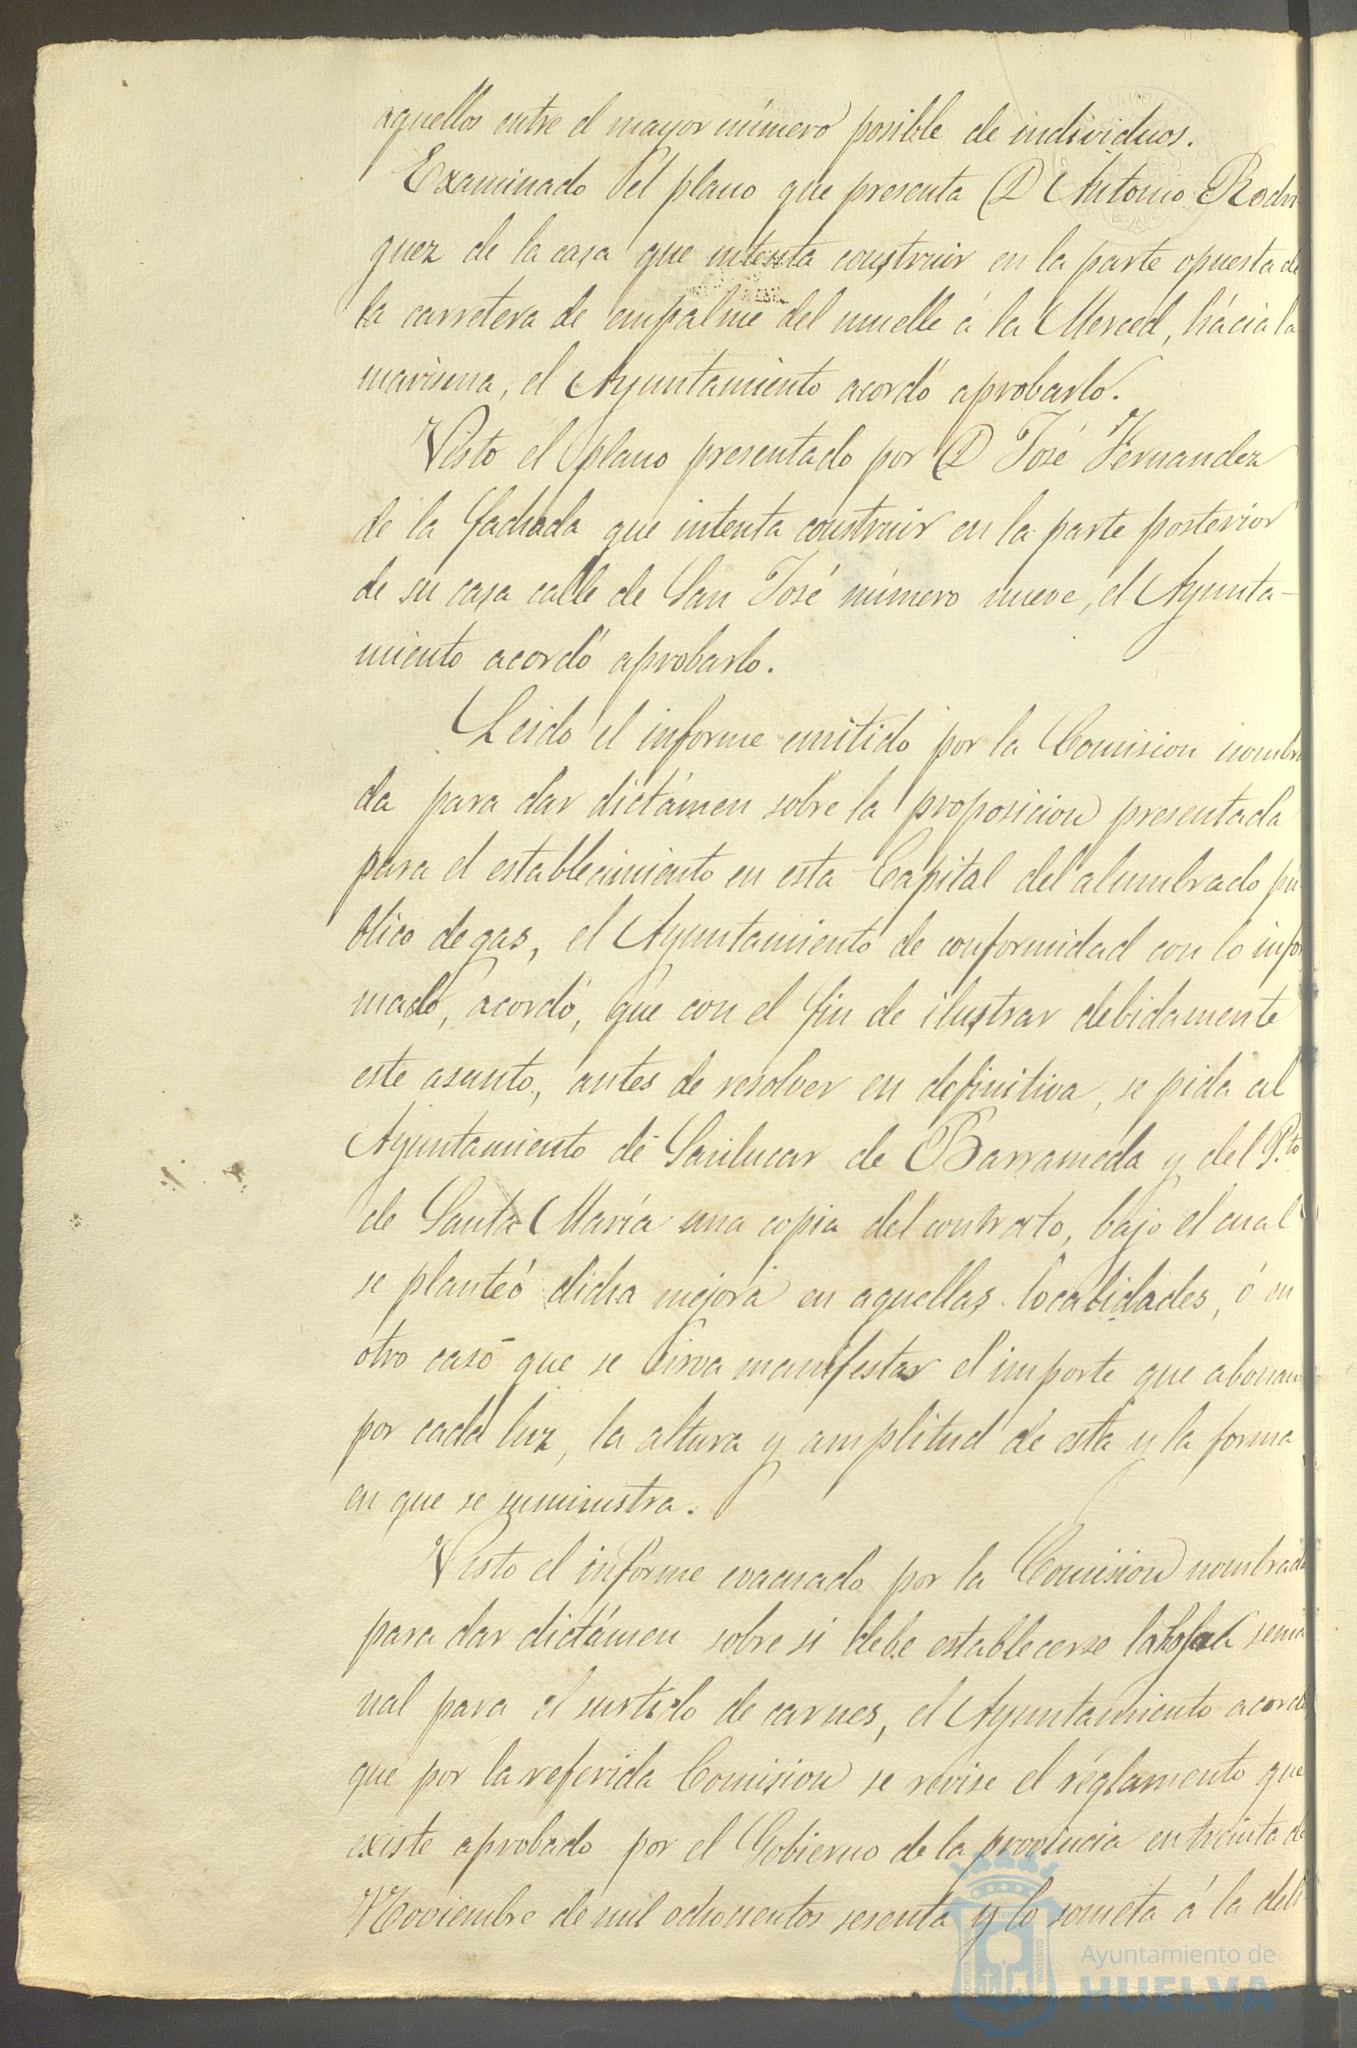 aquellos entre el mayor número posible de individuos.
Examinado el plano que presenta D Antonio Rodri
guez de la casa que intenta construir en la parte opuesta de
la carretera de empalme del muelle á la Merced, hácia la
marisma, el Ayuntamiento acordó aprobarlo.
Visto el plano presentado por D José Fernandez
de la fachada que intenta construir en la parte posterior
de su casa calle de San José número nueve, el Ayunta-
miento acordó aprobarlo.
Leido el informe emitido por la Comision nombra
da para dar dictámen sobre la proposicion presentada
para el establecimiento en esta Capital del alumbrado pu
blico de gas, el Ayuntamiento de conformidad con lo infor
mado, acordó, que con el fin de ilustrar debidamente
este asunto, antes de resolver en definitiva, se pida al
Ayuntamiento de Sanlucar de Barrameda y del P.to
de Santa María una copia del contrato, bajo el cual
se planteó dicha mejora en aquellas localidades, ó en
otro caso que se sirva manifestar el importe que abonan
por cada luz, la altura y amplitud de esta y la forma
en que se suministra.
Visto el informe evacuado por la Comision nombrada
para dar dictámen sobre si debe establecerse la sema
nal para el surtido de carnes, el Ayuntamiento acordó
que por la referida Comision se revise el réglamento que
existe aprobado por el Gobierno de la provincia en treinta de
Noviembre de mil ochocientos sesenta y lo someta á la deli
Ayuntamiento de
HUELVA